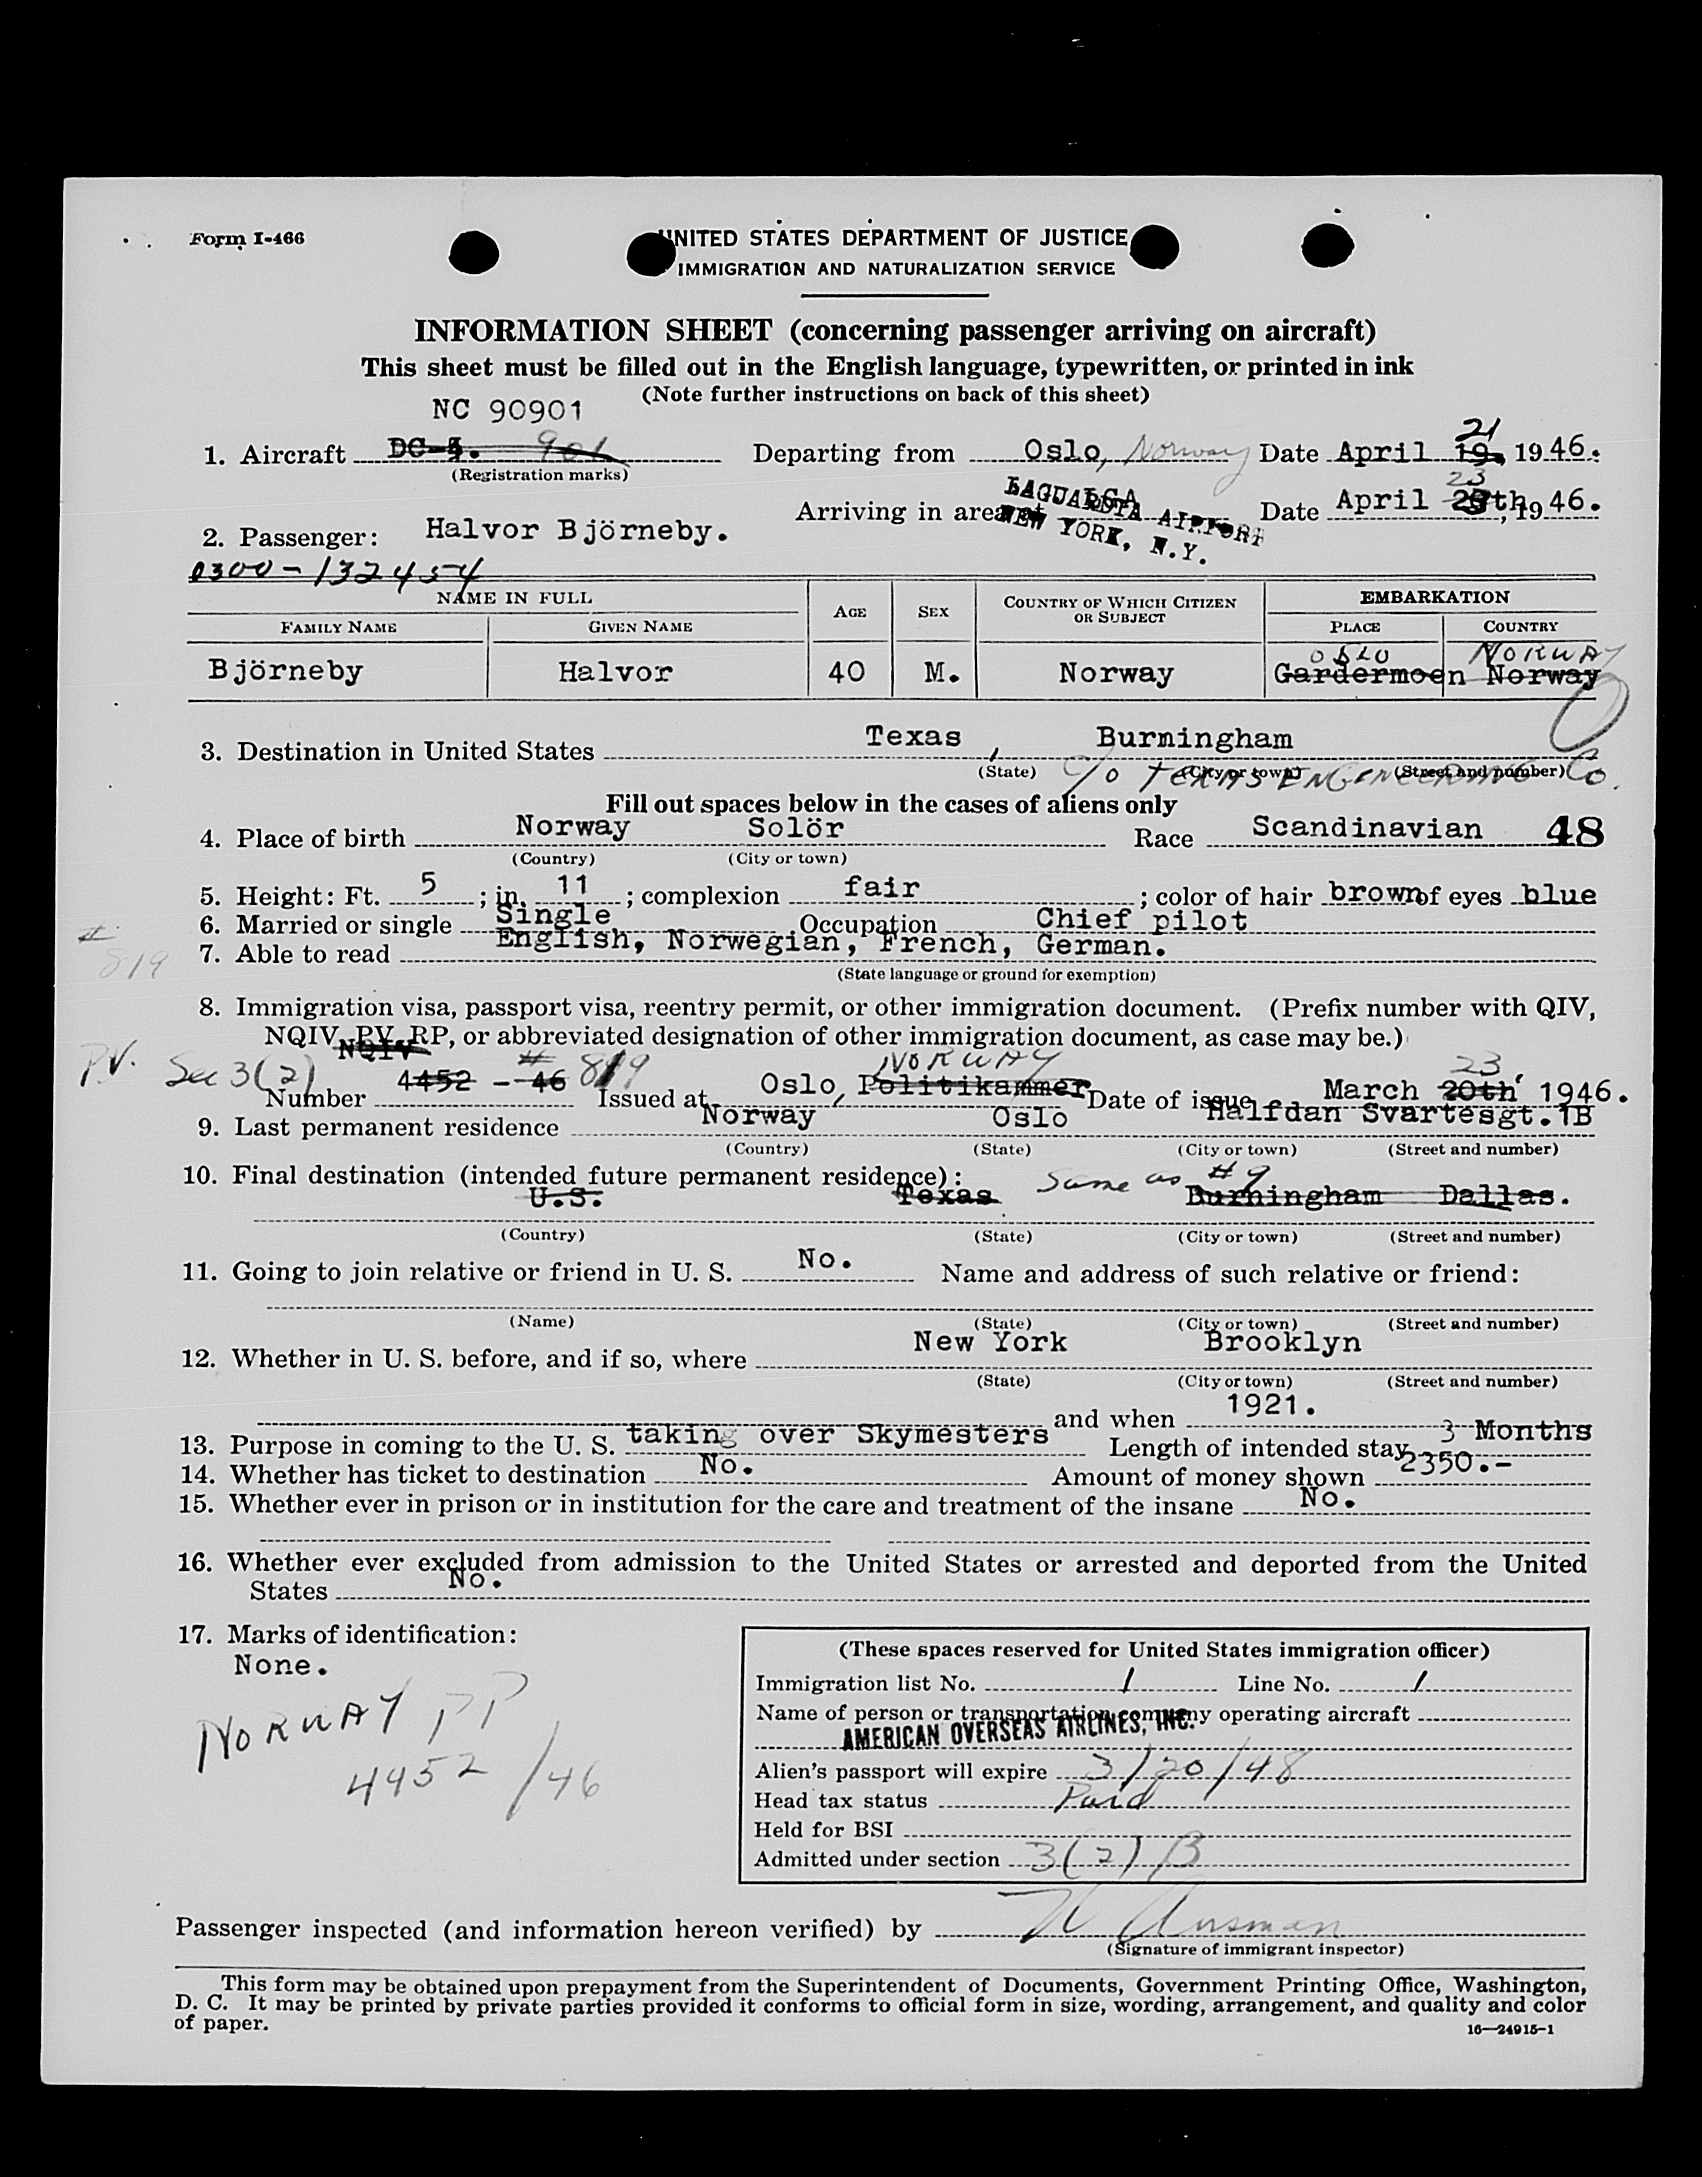 Form I-466
UNITED STATES DEPARTMENT OF JUSTICE
IMMIGRATION AND NATURALIZATION SERVICE
INFORMATION SHEET (concerning passenger arriving on aircraft)
This sheet must be filled out in the English language, typewritten, or printed in ink
(Note further instructions on back of this sheet)
NC 90901
1. Aircraft DC-4. 901 Departing from Oslo, Norway Date April 19, 21 1946.
(Registration marks)
Arriving in area at LGA LAGUARDIA AIRPORT NEW YORK, N.Y. Date April 23 th, 1946.
2. Passenger: Halvor Björneby.
0300-132454
NAME IN FULL AGE SEX COUNTRY OF WHICH CITIZEN OR SUBJECT EMBARKATION
FAMILY NAME GIVEN NAME PLACE COUNTRY
OSLO NORWAY
Björneby Halvor 40 M. Norway Gardermoen Norway
3. Destination in United States Texas, Burningham
(State) (City or town) (Street and number)
c/o TEXAS ENGINEERING Co.
Fill out spaces below in the cases of aliens only
4. Place of birth Norway Solör Race Scandinavian 48
(Country) (City or town)
5. Height: Ft. 5 ; in. 11 ; complexion fair ; color of hair brown of eyes blue
6. Married or single Single Occupation Chief pilot
# 819
7. Able to read English, Norwegian, French, German.
(State language or ground for exemption)
8. Immigration visa, passport visa, reentry permit, or other immigration document. (Prefix number with QIV,
NQIV, PV, RP, or abbreviated designation of other immigration document, as case may be.)
NQIV
P.V. Sec 3(2) # 819 NORWAY 23,
Number 4452 - 46 Issued at Oslo, Politikammer Date of issue March 20th 1946.
9. Last permanent residence Norway Oslo Halfdan Svartesgt. 1B
(Country) (State) (City or town) (Street and number)
10. Final destination (intended future permanent residence): Same as #9
U.S. Texas Burningham Dallas.
(Country) (State) (City or town) (Street and number)
11. Going to join relative or friend in U. S. No. Name and address of such relative or friend:
(Name) (State) (City or town) (Street and number)
12. Whether in U. S. before, and if so, where New York Brooklyn
(State) (City or town) (Street and number)
and when 1921.
13. Purpose in coming to the U. S. taking over Skymesters Length of intended stay 3 Months
14. Whether has ticket to destination No. Amount of money shown 2350.-
15. Whether ever in prison or in institution for the care and treatment of the insane No.
16. Whether ever excluded from admission to the United States or arrested and deported from the United
States No.
17. Marks of identification:
None.
NORWAY PP
4452/46
(These spaces reserved for United States immigration officer)
Immigration list No. 1 Line No. 1
Name of person or transportation company operating aircraft
AMERICAN OVERSEAS AIRLINES, INC.
Alien's passport will expire 3/20/48
Head tax status Paid
Held for BSI
Admitted under section 3(2) B
Passenger inspected (and information hereon verified) by
(Signature of immigrant inspector)
This form may be obtained upon prepayment from the Superintendent of Documents, Government Printing Office, Washington,
D. C. It may be printed by private parties provided it conforms to official form in size, wording, arrangement, and quality and color
of paper.
16—24915-1